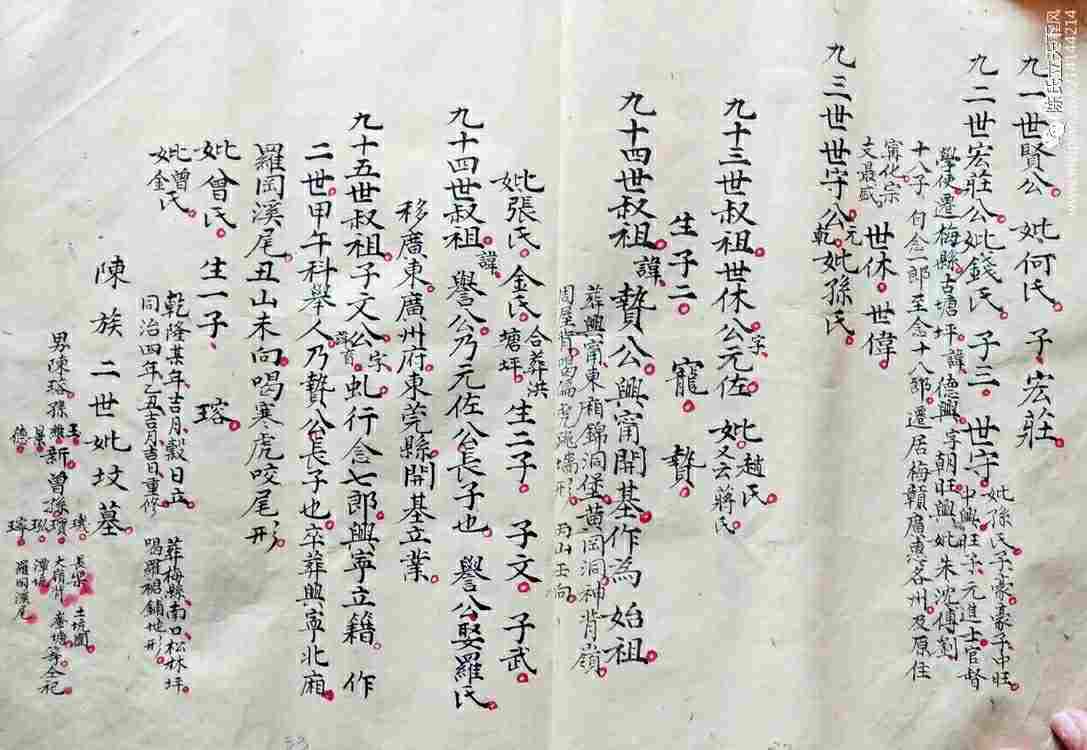 九一世賢公妣何氏子宏莊
九二世宏莊公妣錢氏子三世守
妣孫氏子豪豪子中旺
中興旺宋元進士官督
學使遷梅縣古塘坪諱德興字朝旺興妣朱沈傅劉
十八子付念一郎至念十八郎遷居梅贛眉惠各州及原住
甯化宗
文最盛
世休世偉
九三世世守公元乾妣孫氏
九十三世叔祖世休公字元佐妣趙氏
又云蔣氏
生子二寵贄
九十四世叔祖諱贄公興甯開基作為始祖
葬興甯東廂錦洞堡黄岡洞神背嶺
丙山壬向
妣張氏金氏合葬洪
塘坪生二子子文子武
九十四世叔祖諱譽公乃元佐公長子也譽公娶羅氏
移廣東廣州府東莞縣開基立業
九十五世叔祖子文公字虬行念七郎興寧立籍作
二世甲午科舉人乃贄公長子也卒葬興寧北廂
羅岡溪尾丑山未向喝寒虎咬尾形
妣曾氏生一子瑢
妣曾
金氏
乾隆某年吉月穀日立葬梅縣南口松林坪
同治四年乙丑吉月吉日重修喝羅裙鋪地形
陳族二世妣坟墓
男陳瑢孫
新曾孫
長樂土坑圍
羅岡溪尾